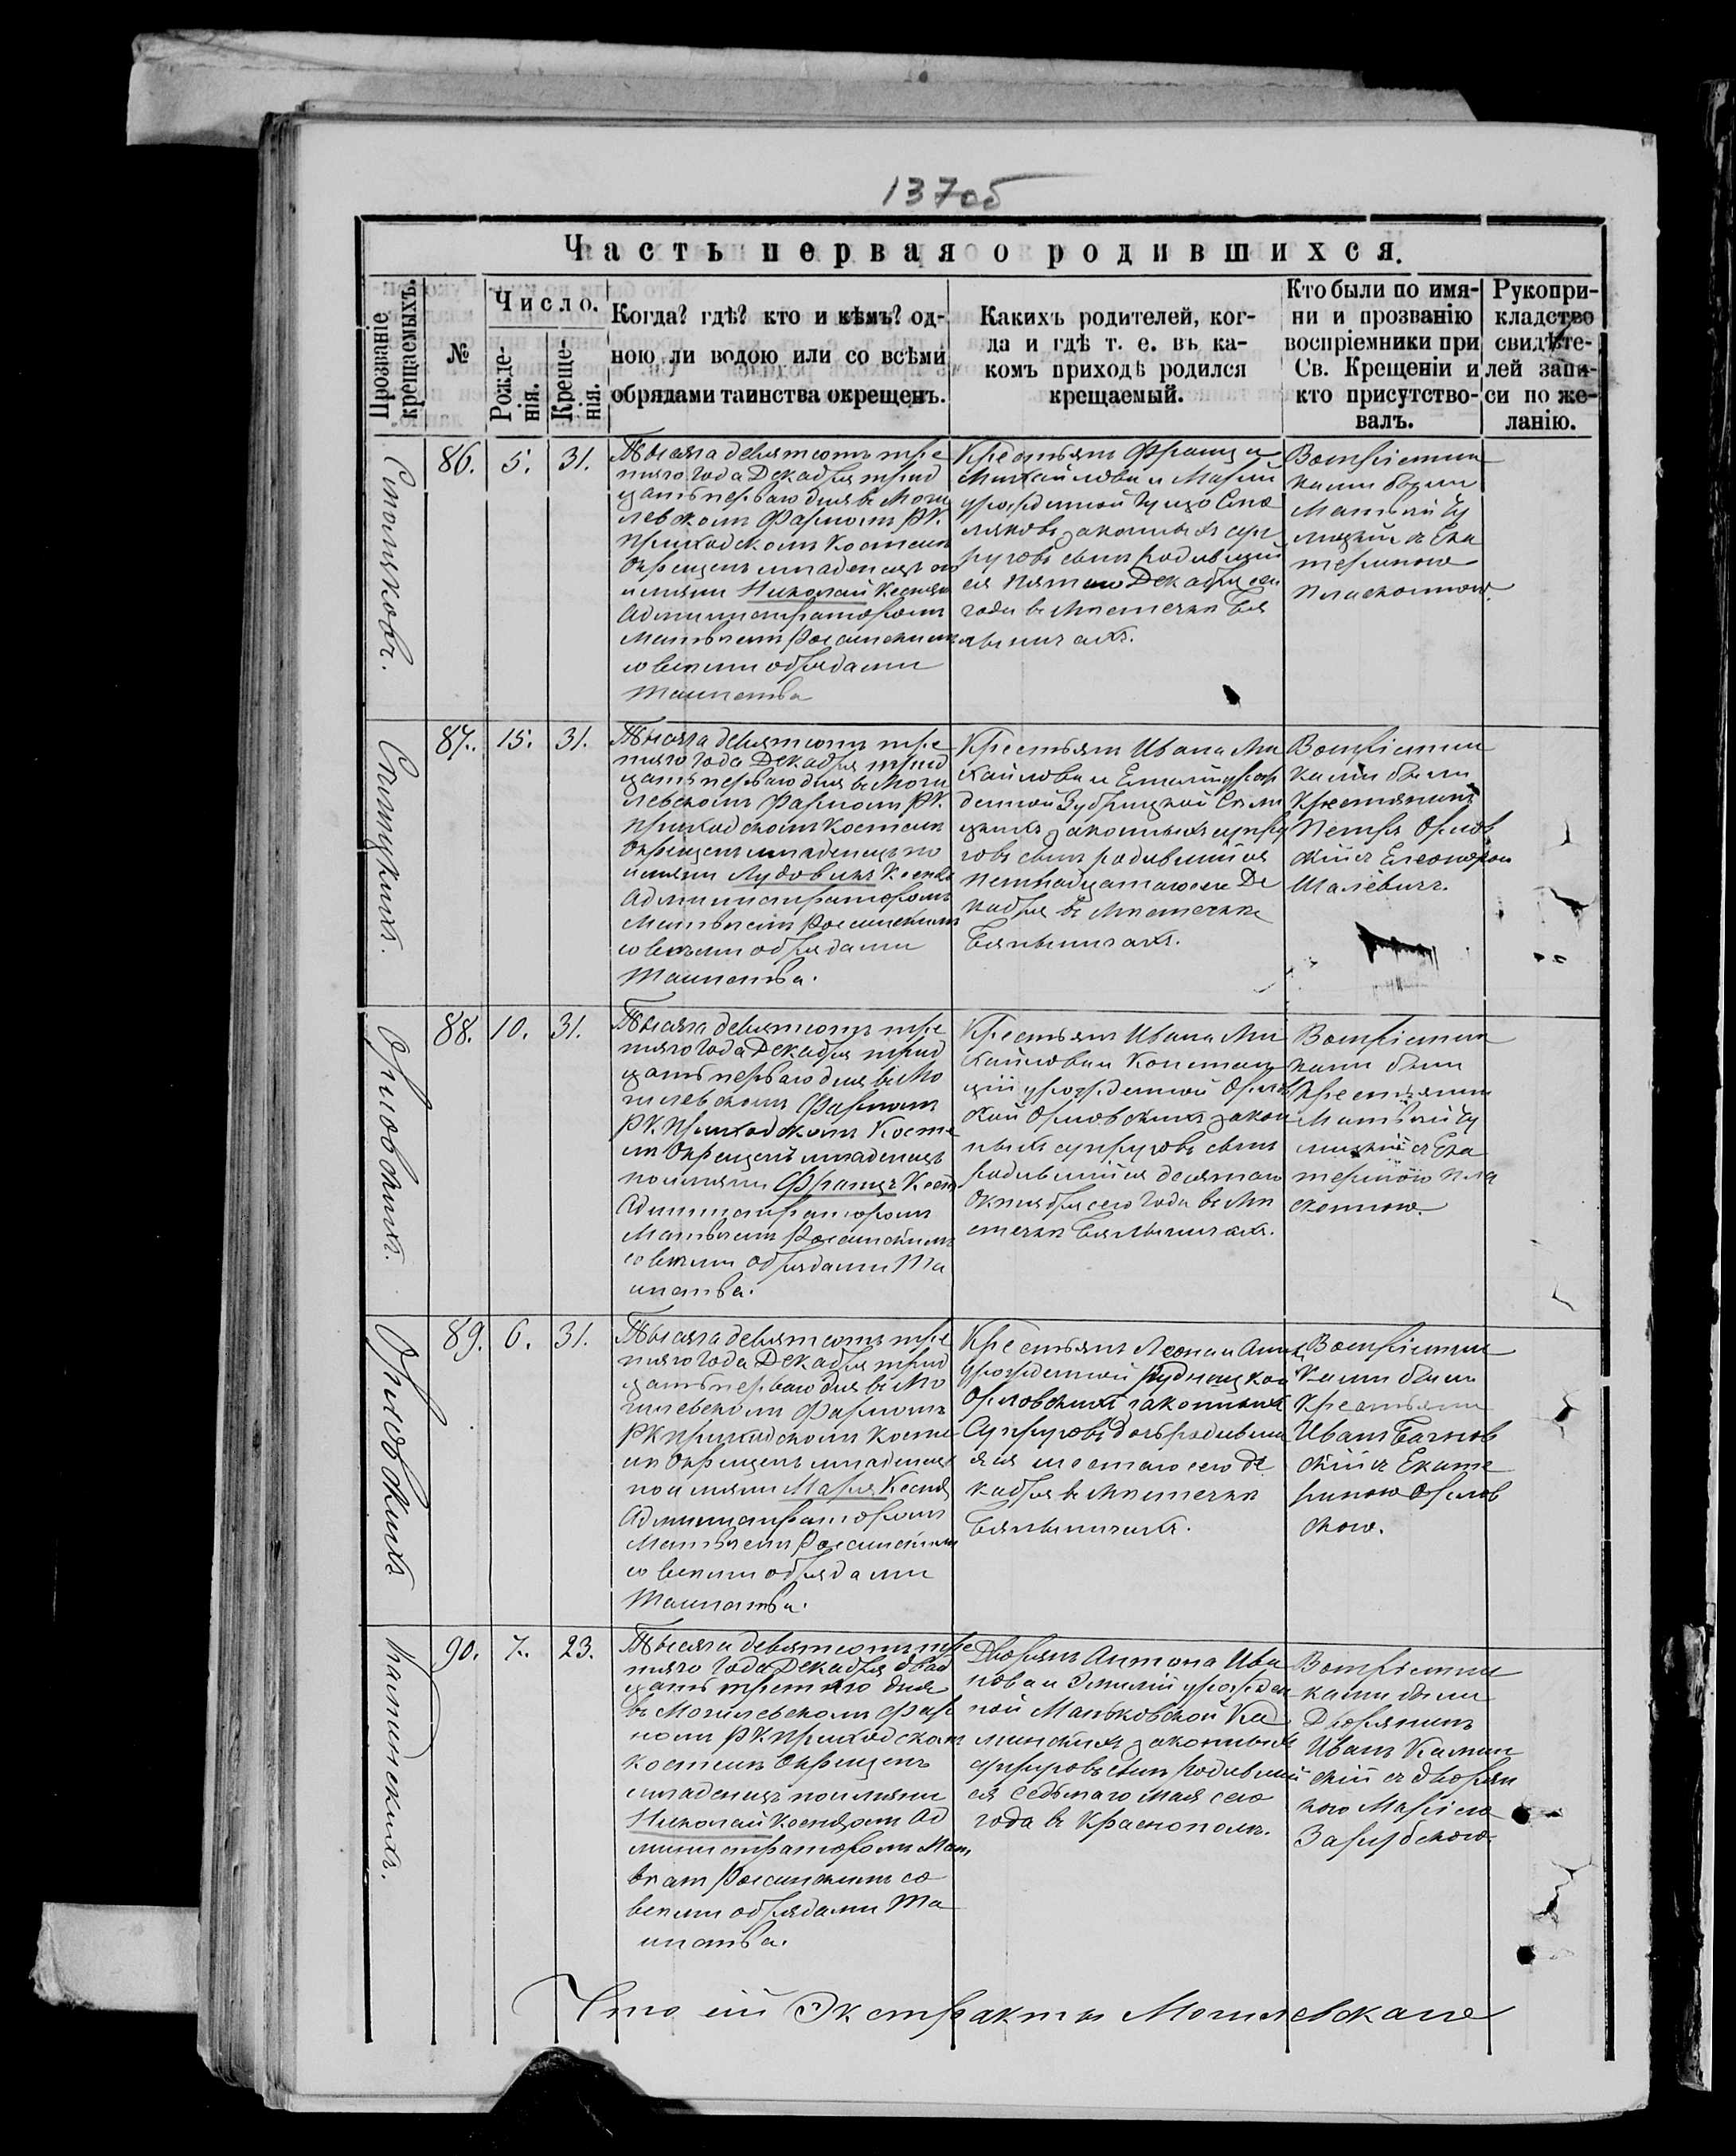 137об
Часть первая о родившихся.
Прозваніе крещаемыхъ.
№
Число.
Рожденія.
Крещенія.
Когда? гдѣ? кто и кѣмъ? од-
ною ли водою или со всѣми
обрядами таинства окрещенъ.
Какихъ родителей, ког-
да и гдѣ т. е. въ ка-
комъ приходѣ родился
крещаемый.
Кто были по имя-
ни и прозванію
воспріемники при
Св. Крещеніи и
кто присутство-
валъ.
Рукопри-
кладство
свидѣте-
лей запи-
си по же-
ланію.
86.
5.
31.
Тысяча девятсотъ тре
тьяго года Декабря трид
цать перваго дня въ Моги
левскомъ Фарномъ РК.
приходскомъ Костелѣ
Окрещенъ младенецъ по
имени Николай Ксендзомъ
Администраторомъ
Матвѣемъ
со всѣми обрядами
Таинства
Крестьянъ Франца
Михайлова и Маріи
урожденной
законныхъ суп
руговъ сынъ родившій
ся пятого Декабря сего
года въ Мѣстечкѣ Бѣ
лыничахъ.
Воспріемни
ками были
Матвѣй
и Ека
териною
87.
15.
31.
Спицкихъ.
Тысяча девятсотъ тре
тьяго года Декабря трид
цать перваго дня въ Моги
левскомъ Фарномъ РК.
приходскомъ Костелѣ
Окрещенъ младенецъ по
имени Лудовикъ Ксендзомъ
Администраторомъ
Матвѣемъ
со всѣми обрядами
Таинства.
Крестьянъ Ивана Ми
хайлова и Емиліи урож
денной Зубрицкой
законныхъ супру
говъ сынъ родившійся
пятнадцатаго сего Де
кабря въ Мѣстечкѣ
Бѣлыничахъ.
Воспріемни
ками были
Крестьянинъ
Петръ Орлов
скій съ Елеонорою
88.
10.
31.
Орловскихъ.
Тысяча девятсотъ тре
тьяго года Декабря трид
цать перваго дня въ Мо
гилевскомъ Фарномъ
РК. приходскомъ Косте
лѣ Окрещенъ младенецъ
по имени Францъ Ксенд
Администраторомъ
Матвѣемъ
со всѣми обрядами Та
инства.
Крестьянъ Ивана Ми
хайлова и Констан
ціи урожденной Орлов
ской Орловскихъ закон
ныхъ супруговъ сынъ
родившійся десятаго
Октября сего года въ Мѣ
стечкѣ Бѣлыничахъ.
Воспріемни
ками были
Крестьянинъ
Матвѣй
съ Ека
териною
89.
6.
31.
Орловскихъ
Тысяча девятсотъ тре
тьяго года Декабря трид
цать перваго дня въ Мо
гилевскомъ Фарномъ
РК приходскомъ Косте
лѣ Окрещенъ младенецъ
по имени Марія Ксендз
Администраторомъ
Матвѣемъ
со всѣми обрядами
Таинства.
Крестьянъ Леона и Анны
урожденной Рудницкой
Орловскихъ законныхъ
Супруговъ дочь родивша
яся шестаго сего Де
кабря въ Мѣстечкѣ
Бѣлыничахъ.
Воспріемни
ками были
Крестьяни
Иванъ
съ Екате
риною Орлов
скою.
90.
7.
23.
Каминскихъ.
Тысяча девятсотъ тре
тьяго года Декабря двад
цать третьяго дня
въ Могилевскомъ Фар
номъ РК приходскомъ
костелѣ Окрещенъ
младенецъ по имени
Николай Ксендзомъ Ад
министраторомъ Мат
вѣемъ со
всѣми обрядами Та
инства.
Дворянъ Антона Ива
нова и Эмиліи урожден
ной Маньковской Ка
минскихъ законныхъ
супруговъ сынъ родивший
ся седьмаго мая сего
года въ Краснополѣ.
Воспріемни
ками были
Дворянинъ
Иванъ Камин
скій съ дворян
кою Маріею
Зарубскою.
Что сій Экстрактъ Могилевскаго